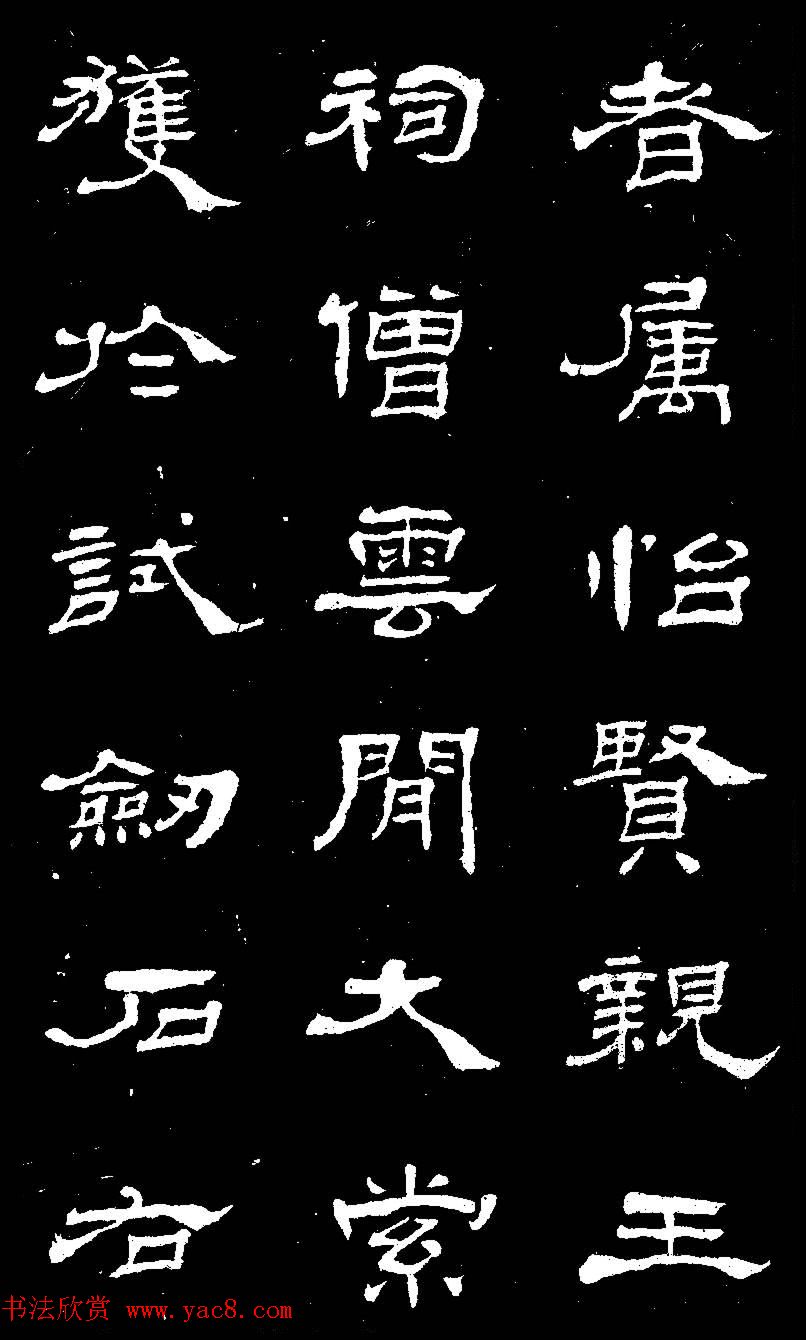 者属怡賢親王
祠僧雲閒大索
獲於試劒石右
书法欣赏 www.yac8.com